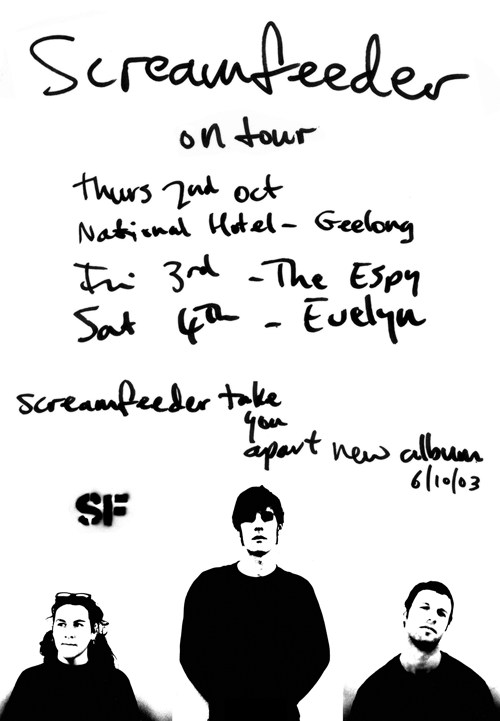 Screamfeeder
on tour
Thurs 2nd oct
National Hotel - Geelong
Fri 3rd - The Espy
Sat 4th - Evelyn
screamfeeder take
you
apart new album
6/10/03
SF